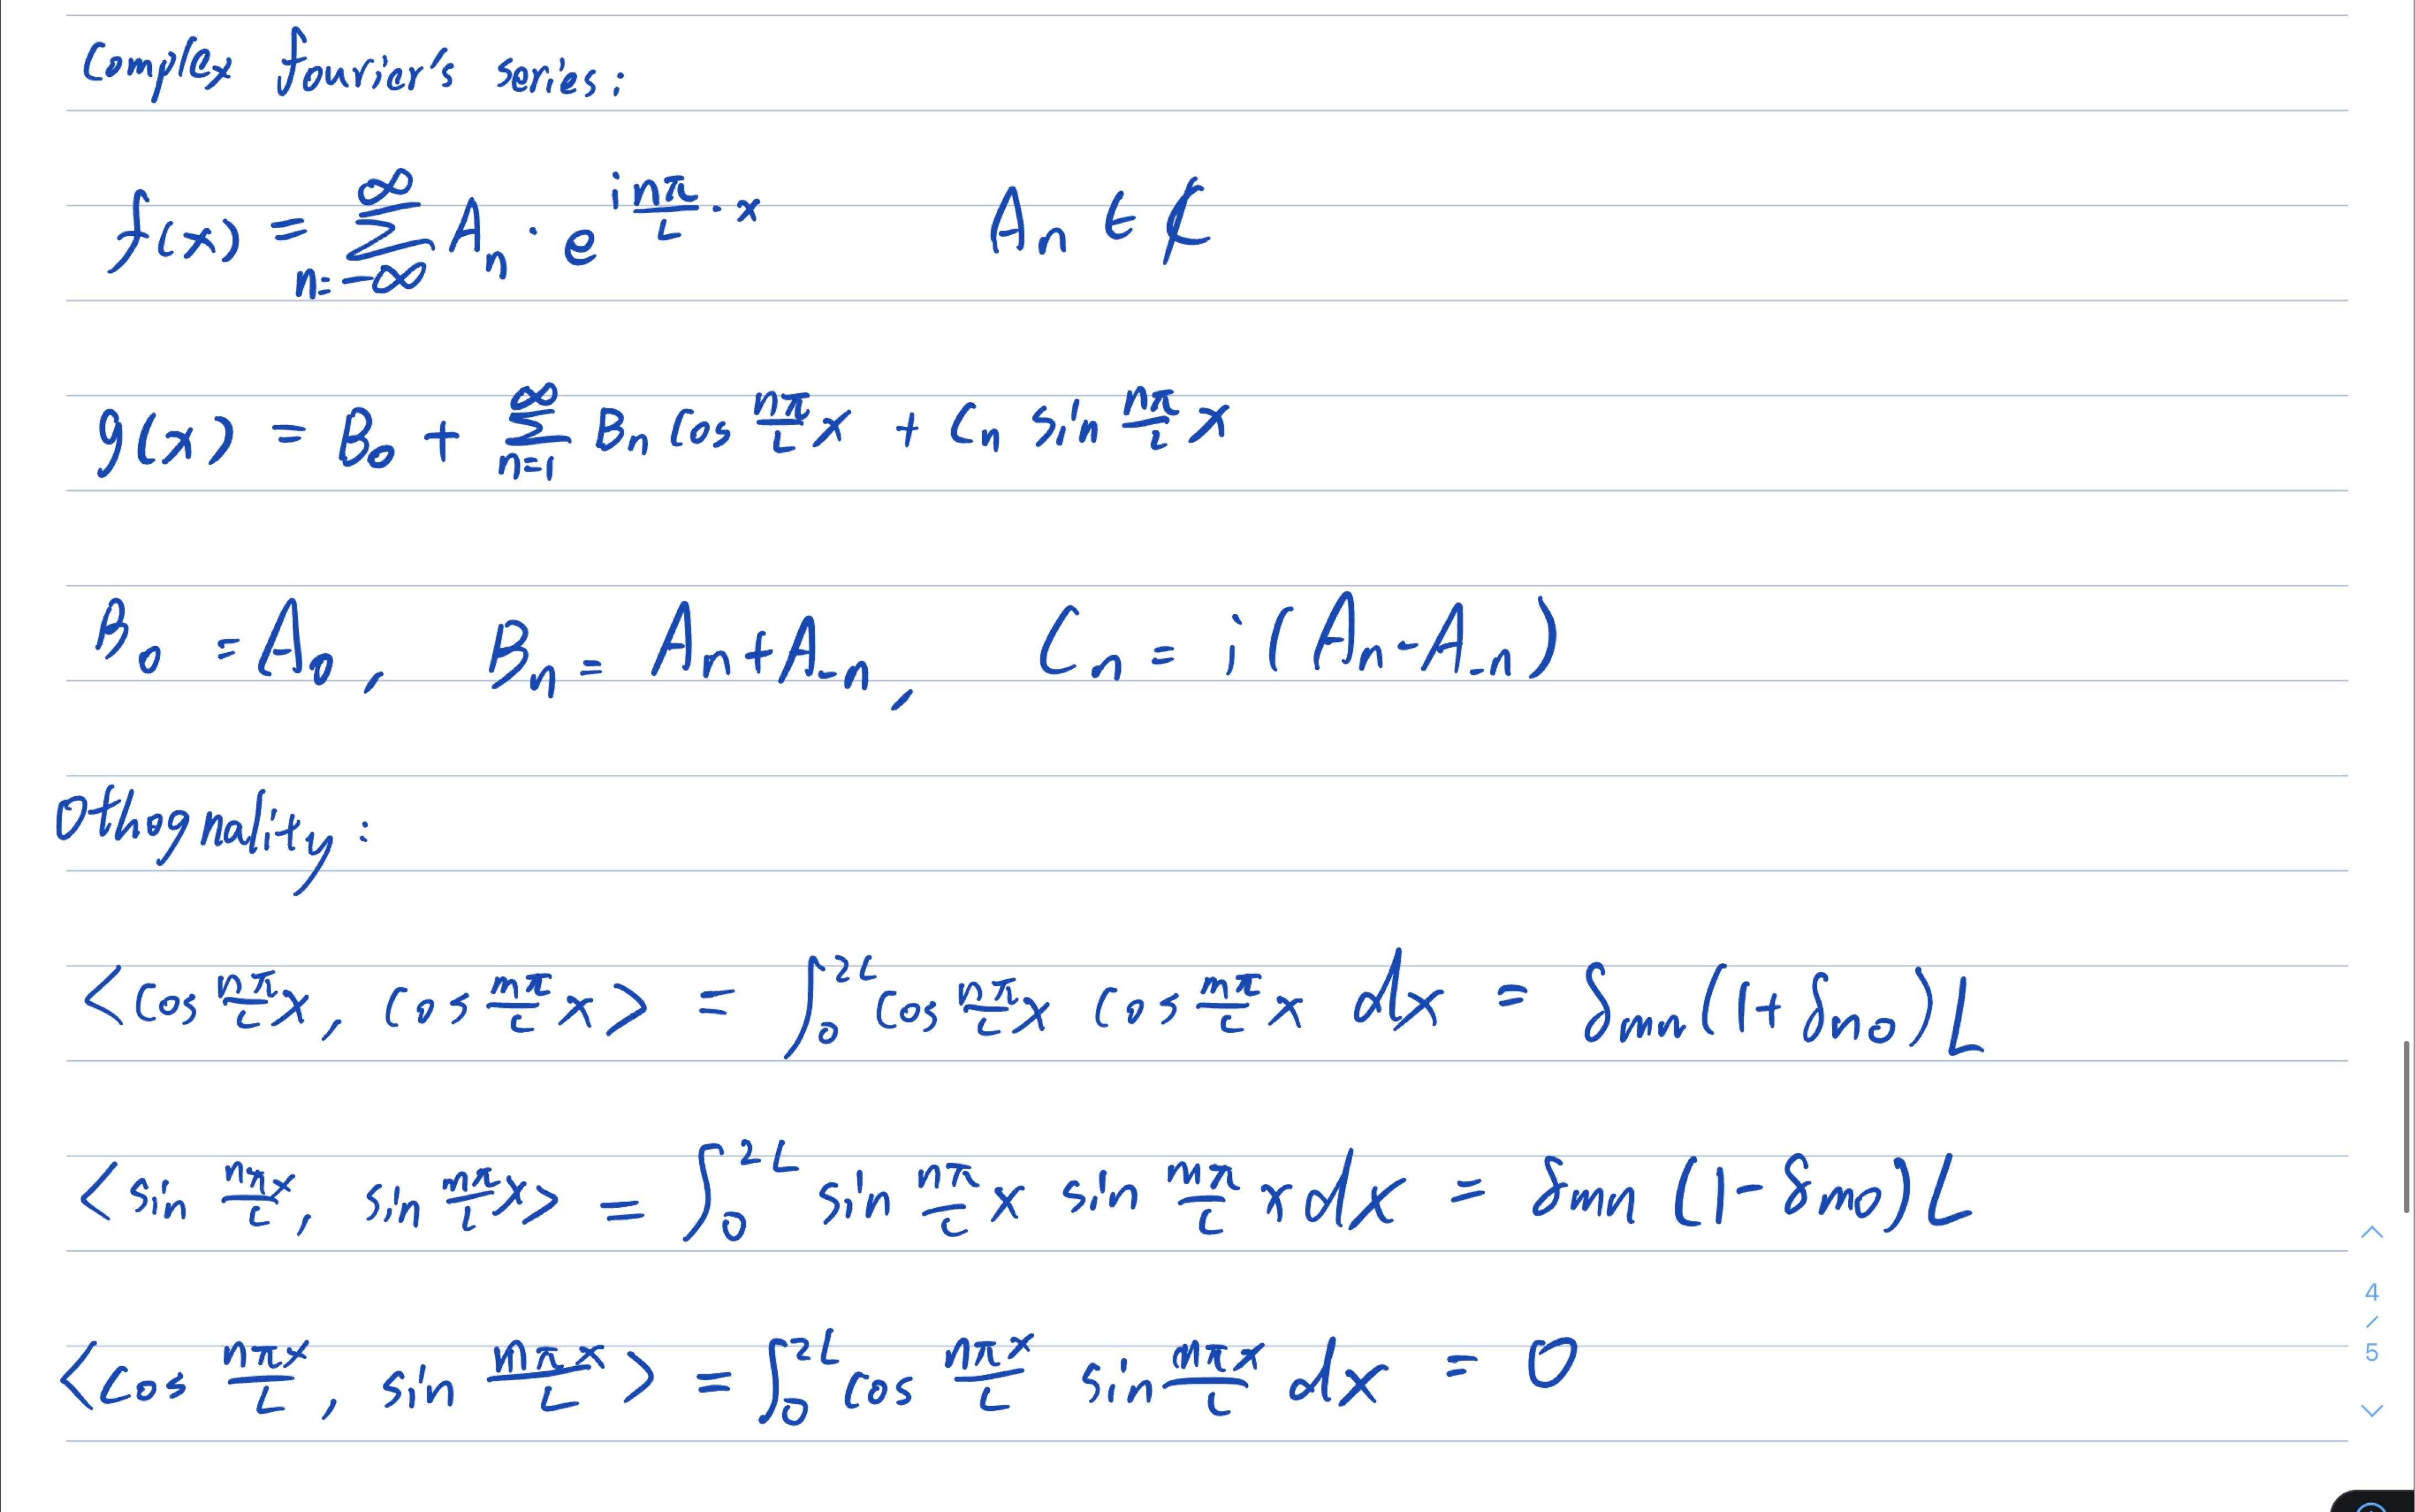 Complex fourier's series:
f(x) = \sum_{n=-∞}^{∞} A_n · e^{i \frac{nπ}{L} · x}    A_n ∈ ℂ
g(x) = B_0 + \sum_{n=1}^{∞} B_n cos \frac{nπ}{L} x + C_n sin \frac{nπ}{L} x
B_0 = A_0, B_n = A_n + A_{-n}, C_n = i(A_n - A_{-n})
Othognality:
<cos \frac{nπ}{L} x, cos \frac{mπ}{L} x> = \int_0^{2L} cos \frac{nπ}{L} x cos \frac{mπ}{L} x dx = δ_{mn} (1 + δ_{m0}) L
<sin \frac{nπx}{L}, sin \frac{mπ}{L} x> = \int_0^{2L} sin \frac{nπ}{L} x sin \frac{mπ}{L} x dx = δ_{mn} (1 - δ_{m0}) L
<cos \frac{nπx}{L}, sin \frac{mπx}{L}> = \int_0^{2L} cos \frac{nπx}{L} sin \frac{mπx}{L} dx = 0
4
/
5